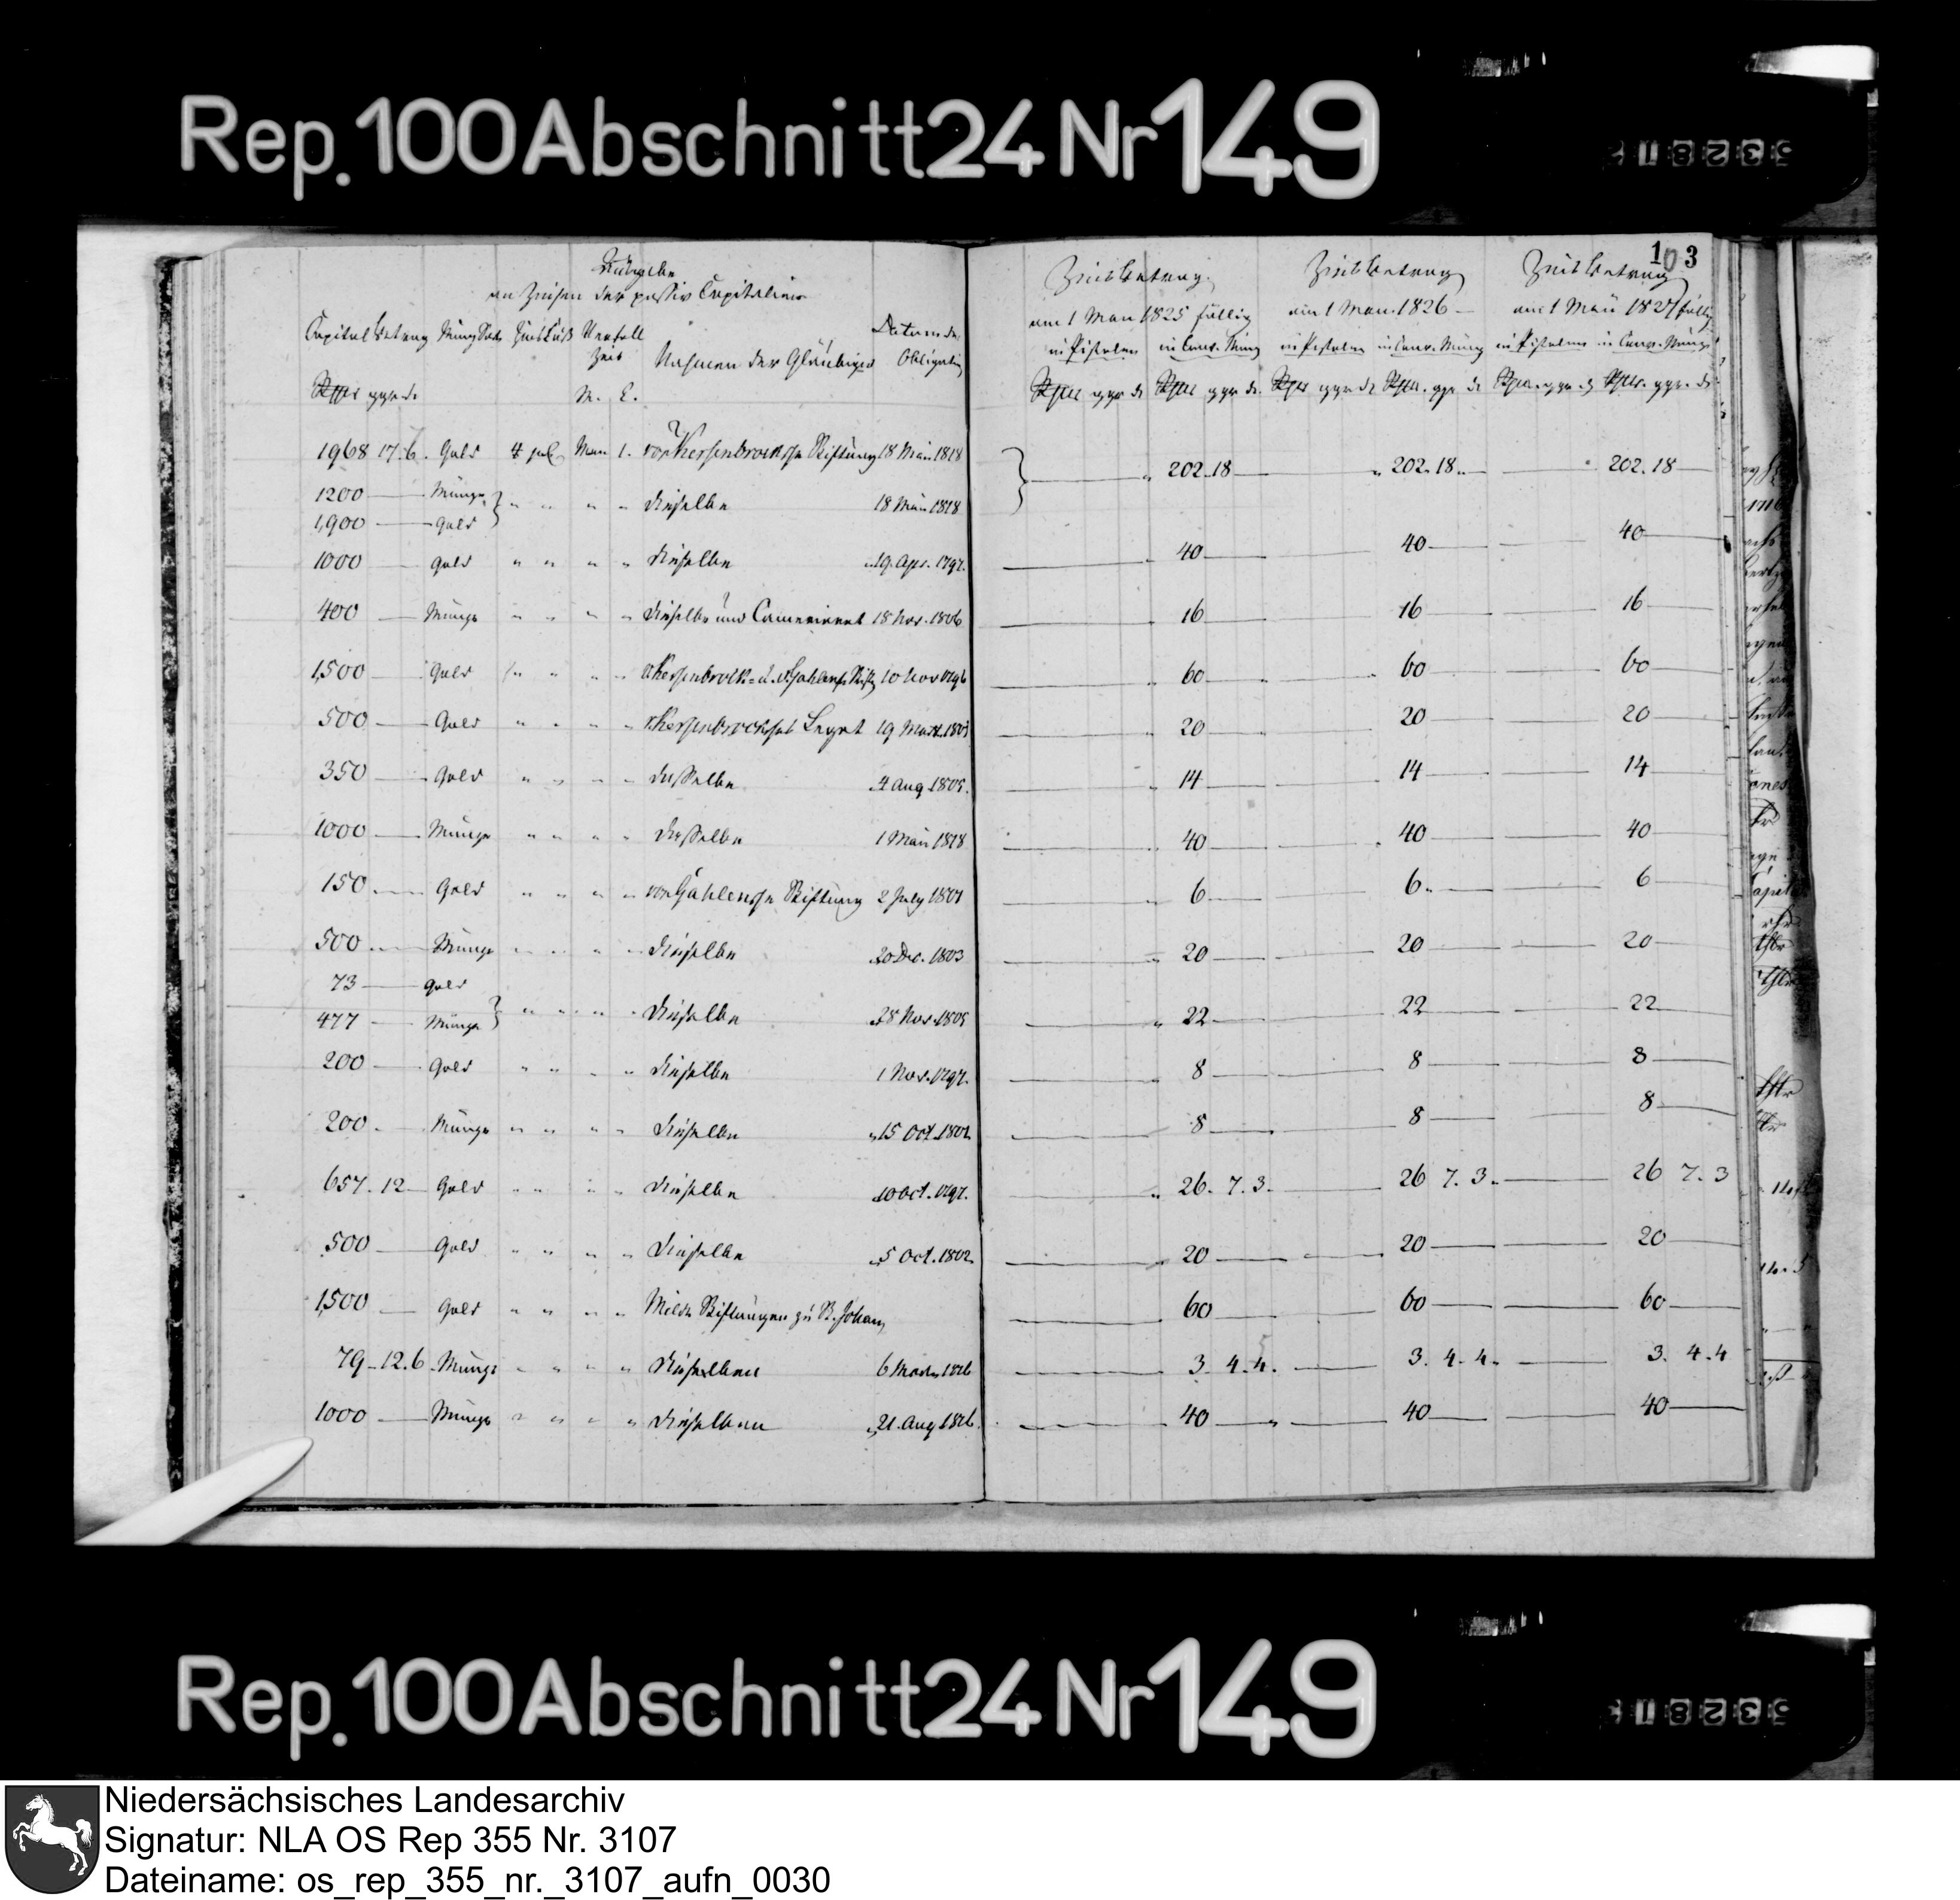 Rep. 100 Abschnitt 24 Nr 149
103
Ausgabe
an Zinsen der passiv Capitalien
Capital Betrag Münz Sorte Zins Fuß Verfall Zeit Nahmen der Gläubiger Datum der Obligation
Rthlr ggr d. M. T.
1968 17. 6. Gold 4 pC May 1. von Kerssenbrocksche Stiftung 18 Mai 1818
1200 — Münze } " " " " dieselbe 18 Mai 1818
1,900 — Gold
1000 — Gold " " " " dieselbe 19. Apr. 1797.
400 — Münze " " " " dieselbe und Camerariat 18 Nov. 1806
1,500 — Gold " " " " v Kerssenbrock= u. v Gahlensche Stiftg 10 Nov 1796
500 — Gold " " " " v. Kerssenbrocksches Legat 19 Mart. 1803
350 — Gold " " " " dasselbe 4 Aug 1805.
1000 — Münze " " " " dasselbe 1 Mai 1818
150 — Gold " " " " von Gahlensche Stiftung 2 July 1801
500 — Münze " " " " dieselbe 20 Dec. 1803
73 — Gold
477 — Münze } " " " " dieselbe 28 Nov. 1805
200 — Gold " " " " dieselbe 1 Nov. 1797.
200 — Münze " " " " dieselbe 15 Oct. 1801
657. 12 — Gold " " " " dieselbe 10 Oct. 1797.
500 — Gold " " " " dieselbe 5 Oct. 1802
1,500 — Gold " " " " Milde Stiftungen zu St. Johann
79 - 12. 6 Münze " " " " dieselben 6 1826
1000 — Münze " " " " dieselben 21. Aug 1826.
Zins Betrag Zins Betrag Zins Betrag
am 1 May 1825 fällig am 1 May 1826 — am 1 Mai 1827 fällig
in Pistolen in Conv. Münz in Pistolen in Conv. Münz in Pistolen in Conv. Münze
Rthlr ggr d. Rthlr ggr d. Rthlr ggr d. Rthlr. ggr d. Rthlr ggr d. Rthlr. ggr. d.
} — 202. 18 — 202. 18. — 202. 18 —
— 40 — 40 — 40 —
— 16 — 16 — 16 —
— 60 — 60 — 60 —
— 20 — 20 — 20 —
— 14 — 14 — 14 —
— 40 — 40 — 40 —
— 6 — 6. — 6 —
— 20 — 20 — 20 —
— 22 — 22 — 22 —
— 8 — 8 — 8 —
— 8 — 8 — 8 —
— 26. 7. 3. — 26 7. 3. — 26 7. 3
— 20 — 20 — 20 —
— 60 — 60 — 60 —
— 3. 4. 4. — 3. 4. 4. — 3. 4. 4
— 40 — 40 — 40 —
Rep. 100 Abschnitt 24 Nr 149
Niedersächsisches Landesarchiv
Signatur: NLA OS Rep 355 Nr. 3107
Dateiname: os_rep_355_nr._3107_aufn_0030